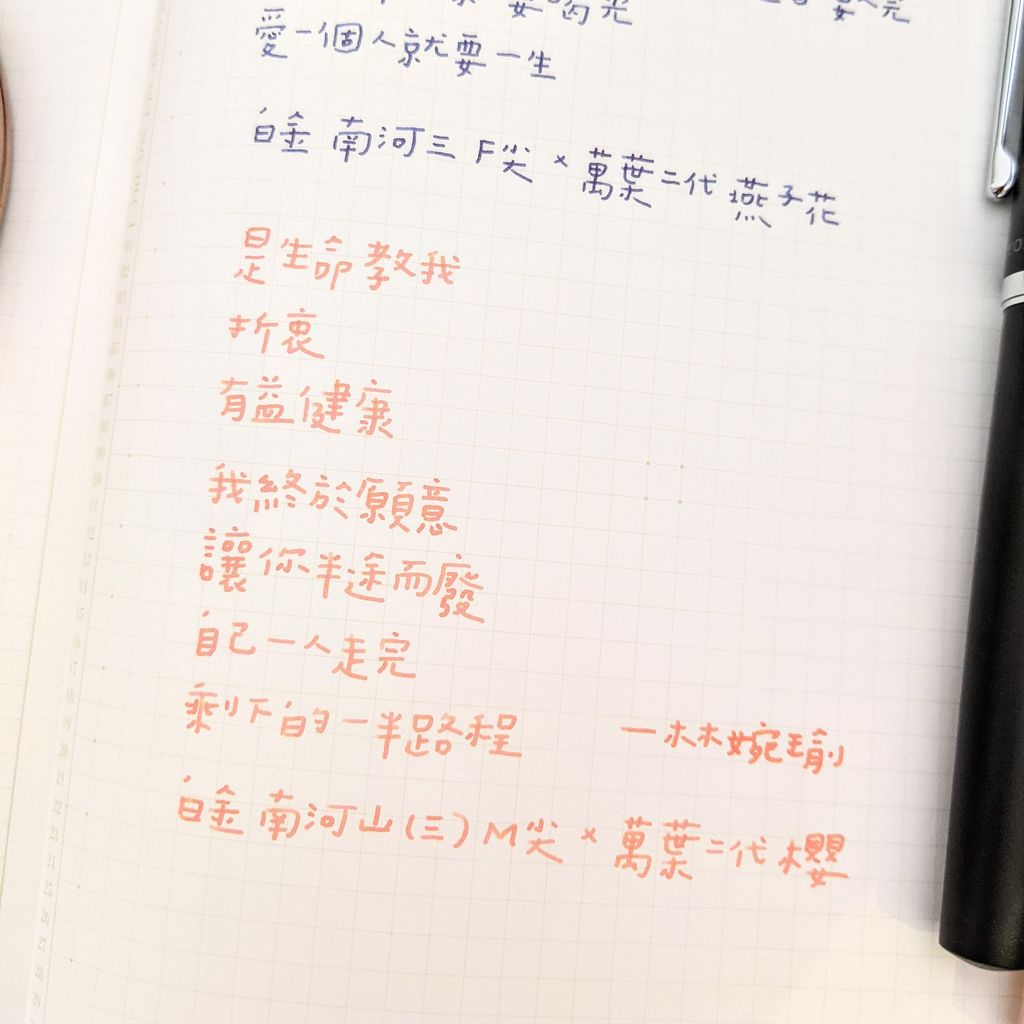 要喝光
愛一個人就要一生
白金 南河三 F尖 × 萬葉二代 燕子花
是生命教我
折衷
有益健康
我終於願意
讓你半途而廢
自己一人走完
剩下的一半路程 —林婉瑜
白金 南河山(三) M尖 × 萬葉二代 櫻